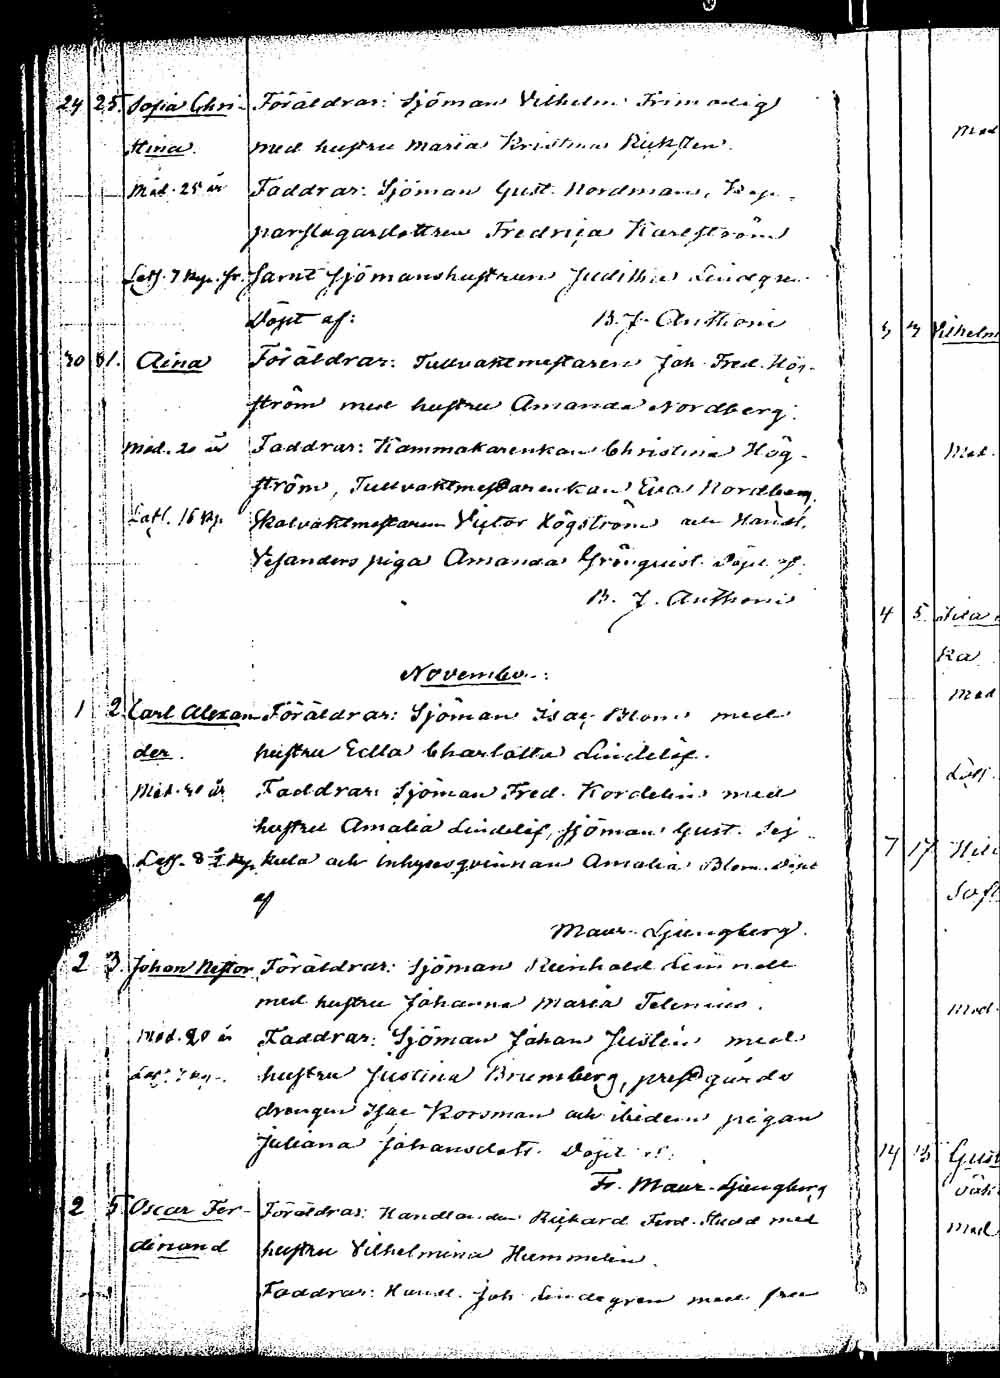 24 25. Sofia Chri- Föräldrar: Sjöman Vilhelm Frimodig
stina. med hustru Maria Kristina
Mod. 25 år Faddrar: Sjöman Gust. Nordman, Rep-
parslagardottren Fredrica Karlström
Lefl. 7 kp. samt Sjömanshustrun Juditha Lindgren
Döpt af: B. J. Anthoni
30 31. Aina Föräldrar: Tullvaktmestaren Joh. Fred. Hög-
ström med hustru Amanda Nordberg.
Mod. 20 år Faddrar: Kammakarenkan Christina Hög-
ström, Tullvaktmestarenkan Eva Nordberg,
Lefl. 16 kp. Skolvaktmestaren Victor Högström och Handl.
Vesanders piga Amanda Grönqvist. Döpt af.
B. J. Anthoni
November:
1 2. Carl Alexan- Föräldrar: Sjöman Isac Blom med
der. hustru Edla Charlotta Lindelöf.
Mod. 40 år Faddrar: Sjöman Fred. Kordelin med
hustru Amalia Lindelöf, sjöman Gust. Sej-
Lefl. 8 ½ kp. kula och inhysesqvinnan Amalia Blom. Döpt
af
Maur. Ljungberg.
2 3. Johan Nestor Föräldrar: Sjöman Reinhold
med hustru Johanna Maria Telenius.
Mod. 20 år Faddrar: Sjöman Johan Justén med
Lefl. 7 kp. hustru Justina Brumberg, prestgårds
drengen Isac Korsman och ibidem pigan
Juliana Johansdott. Döpt af:
Fr. Maur. Ljungberg
2 5. Oscar Fer- Föräldrar: Handlanden Rickard Ferd. med
dinand hustru Vilhelmina Hummelin.
Faddrar: Handl. Joh. Lindegren med fru
Mod
3 Vilhelm
Mod.
4 5.
ka
Mod
Lefl.
7 17.
Sof
Mod.
14 15 Gust
Mod